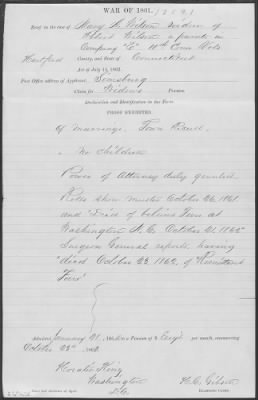 WAR OF 1861.
Brief in the case of Mary A. Wilson widow of
Albert Wilson a private in
Company "E" 11th Conn Vols
Hartford County, and State of Connecticut
Act of July 14, 1862.
Post office address of Applicant, Simsbury
Claim for Widows Pension.
Declaration and Identification in due Form
PROOF EXHIBITED
Of marriage, Town Record
No Children
Power of Attorney duly granted
Rolls show muster October 26, 1861
and Died of
Washington October 21, 1862
Surgeon General reports, having
died October 22, 1862, of Remittent
Fever
Admitted January 21, to a Pension of $ Eight per month, commencing
October
Horatio King
Washington
D.C.
Examining Clerk.